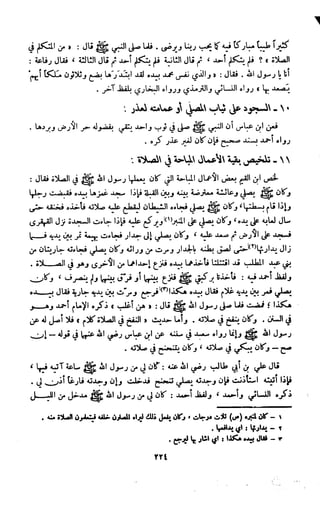 كثيراً طيباً مباركا فيه كما يحب ربنا ويرضى ، فلما صلى النبي ﷺ قال : من المتكلم في
الصلاة ؟ فلم يتكلم أحد ثم قال الثانية فلم يتكلم أحد ثم قال الثالثة ، فقال رفاعة :
أنا يا رسول الله ! فقال : والذي نفس محمد بيده لقد ابتدرها بضع وثلاثون ملكا أيهم
يصعد بها » رواه النسائي والترمذي ورواه البخاري بلفظ آخر .
١٠ - السجود على ثياب المصلي أو عمامته لعذر :
عن ابن عباس أن النبي ﷺ صلى في ثوب واحد يتقي بفضوله حر الأرض وبردها .
رواه أحمد بسند صحيح فإن كان لغير عذر كره .
١١ - تلخيص بقية الأعمال المباحة في الصلاة :
لخص ابن القيم بعض الأعمال المباحة التي كان رسول الله ﷺ يعملها في الصلاة فقال :
وكان ﷺ يصلي وعائشة معترضة بينه وبين القبلة فإذا سجد غمزها بيده فقبضت رجلها
وإذا قام بسطتها ، وكان ﷺ يصلي فجاءه الشيطان ليقطع عليه صلاته فأخذه فخنقه حتى
سال لعابه على يده ، وكان يصلي على المنبر(١) ويركع عليه فإذا جاءت السجدة نزل القهقرى
فسجد على الأرض ثم صعد عليه ، وكان يصلي إلى جدار فجاءت بهمة تمر من بين يديه فما
زال يدارئها(٢) حتى لصق بطنه بالجدار ومرت من ورائه ، وكان يصلي فجاءته جاريتان من
بني عبد المطلب قد اقتتلتا فأخذهما بيده فنزع إحداهما من الأخرى وهو في الصلاة .
ولفظ أحمد فيه : فأخذتا بركبتي النبي ﷺ فنزع بينهما أو فرق بينهما ولم ينصرف ، وكان
يصلي فمر بين يديه غلام فقال بيده هكذا(٣) فرجع ، ومرت بين يديه جارية فقال بيده
هكذا فمضت فلما صلى رسول الله ﷺ قال : « هن أغلب » ذكره الإمام أحمد وهو
في السنن . وكان ينفخ في صلاته ، وأما حديث « النفخ في الصلاة كلام » فلا أصل له عن
رسول الله ﷺ وإنما رواه سعيد في سننه عن ابن عباس رضي الله عنهما من قوله - إن
صح - وكان يبكي في صلاته ، وكان يتنحنح في صلاته .
قال علي بن أبي طالب رضي الله عنه : كان لي من رسول الله ﷺ ساعة آتيه فيها ،
فإذا أتيته استأذنت فإن وجدته يصلي تنحنح دخلت وإن وجدته فارغا أذن لي .
ذكره النسائي وأحمد ، ولفظ أحمد : كان لي من رسول الله ﷺ مدخلان بالليل
١ - كان لمنبره (ص) ثلاث درجات ، وكان يفعل ذلك ليراه المصلون خلفه فيتعلمون الصلاة منه .
٢ - يدارئها : أي يدافعها .
٣ - فقال بيده هكذا : أي أشار بها ليرجع .
٢٢٤